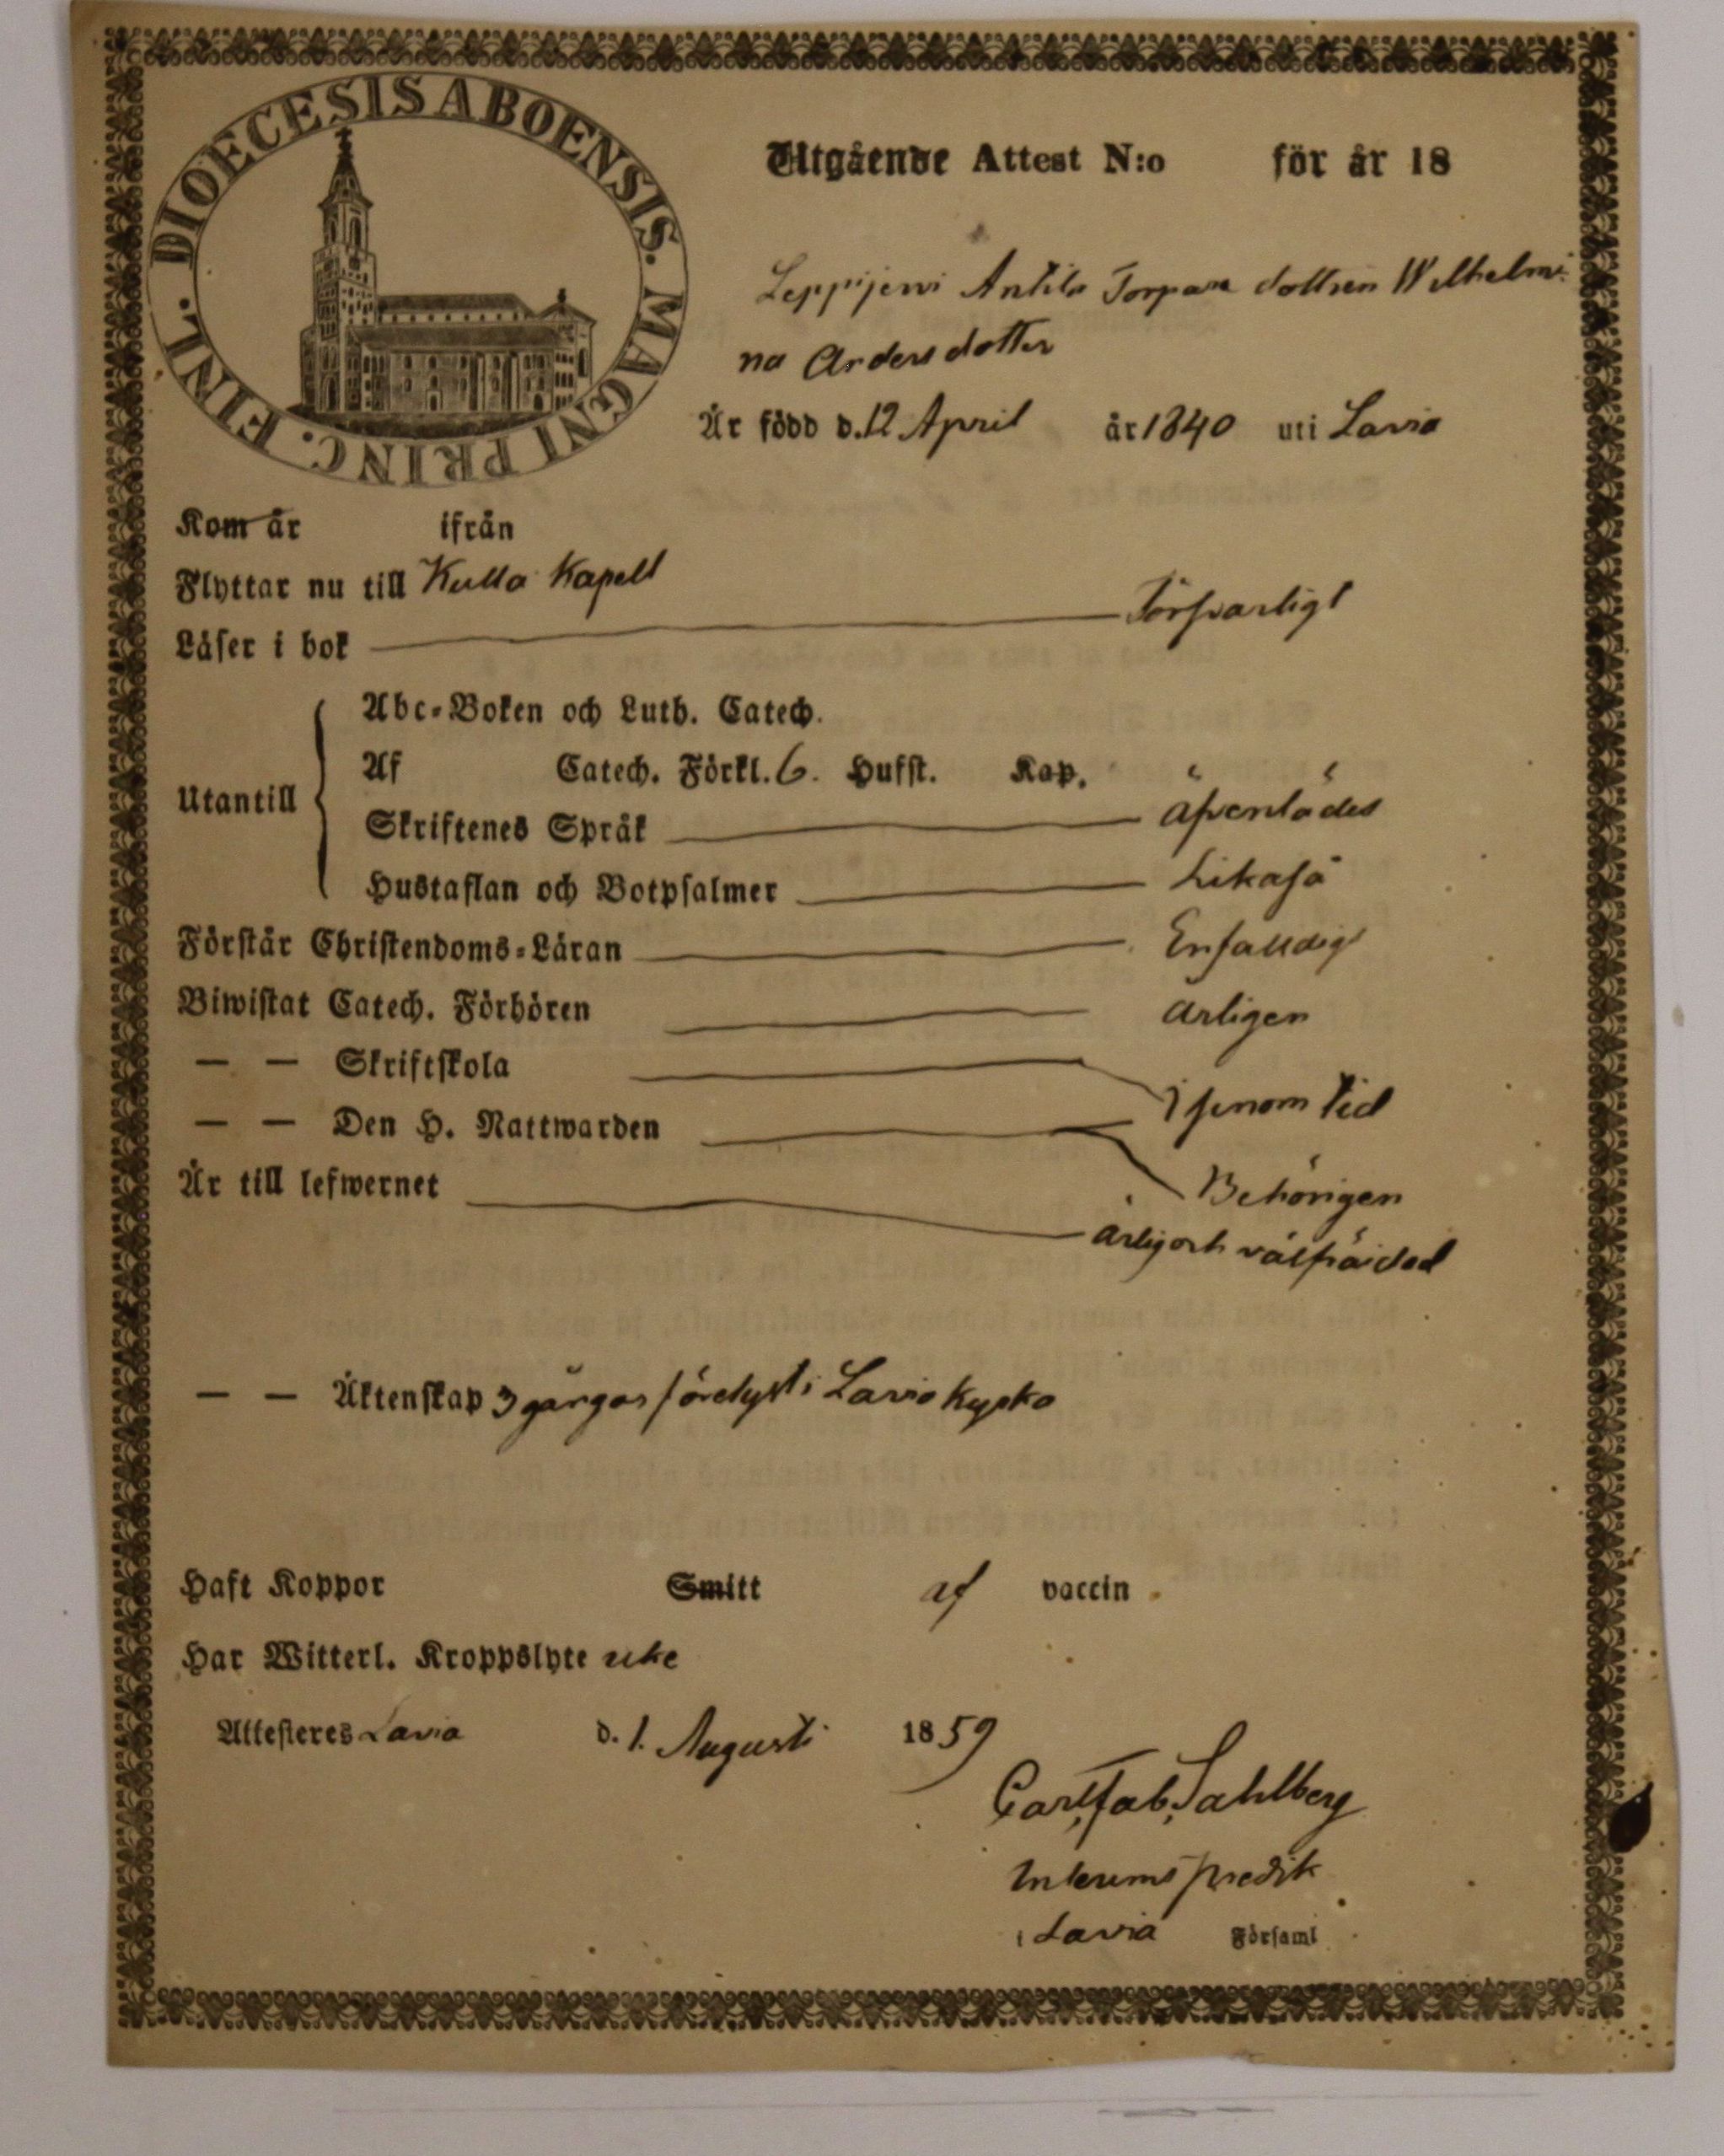 DIOECESIS ABOENSIS. MAGNI PRINC. FINL.
Utgående Attest N:o för år 18
Leppijerwi Antila Torpare dottren Wilhelmi-
na Andersdotter
Är född d. 12 April år 1840 uti Lavia
Kom år ifrån
Flyttar nu till Kulla Kapell
Läser i bok Försvarligt
Abc-Boken och Luth. Catech.
Utantill
Af Catech. Förkl. 6. Hufst. Kap.
Skriftenes Språk äfvenlädes
Hustaflan och Botpsalmer Likaså
Förstår Christendoms-Läran Enfalldigt
Biwistat Catech. Förhören årligen
— — Skriftskola I sinom tid
— — Den H. Nattwarden Behörigen
Är till lefwernet ärlig och välfräjdad
— — Äktenskap 3 gångor förelyst i Lavia Kyrko
Haft Koppor Smitt af vaccin
Har Witterl. Kroppslyte icke
Attesteres Lavia d. 1. Augusti 1859
Carl Fab. Sahlberg
Interims predik
i Lavia Församl